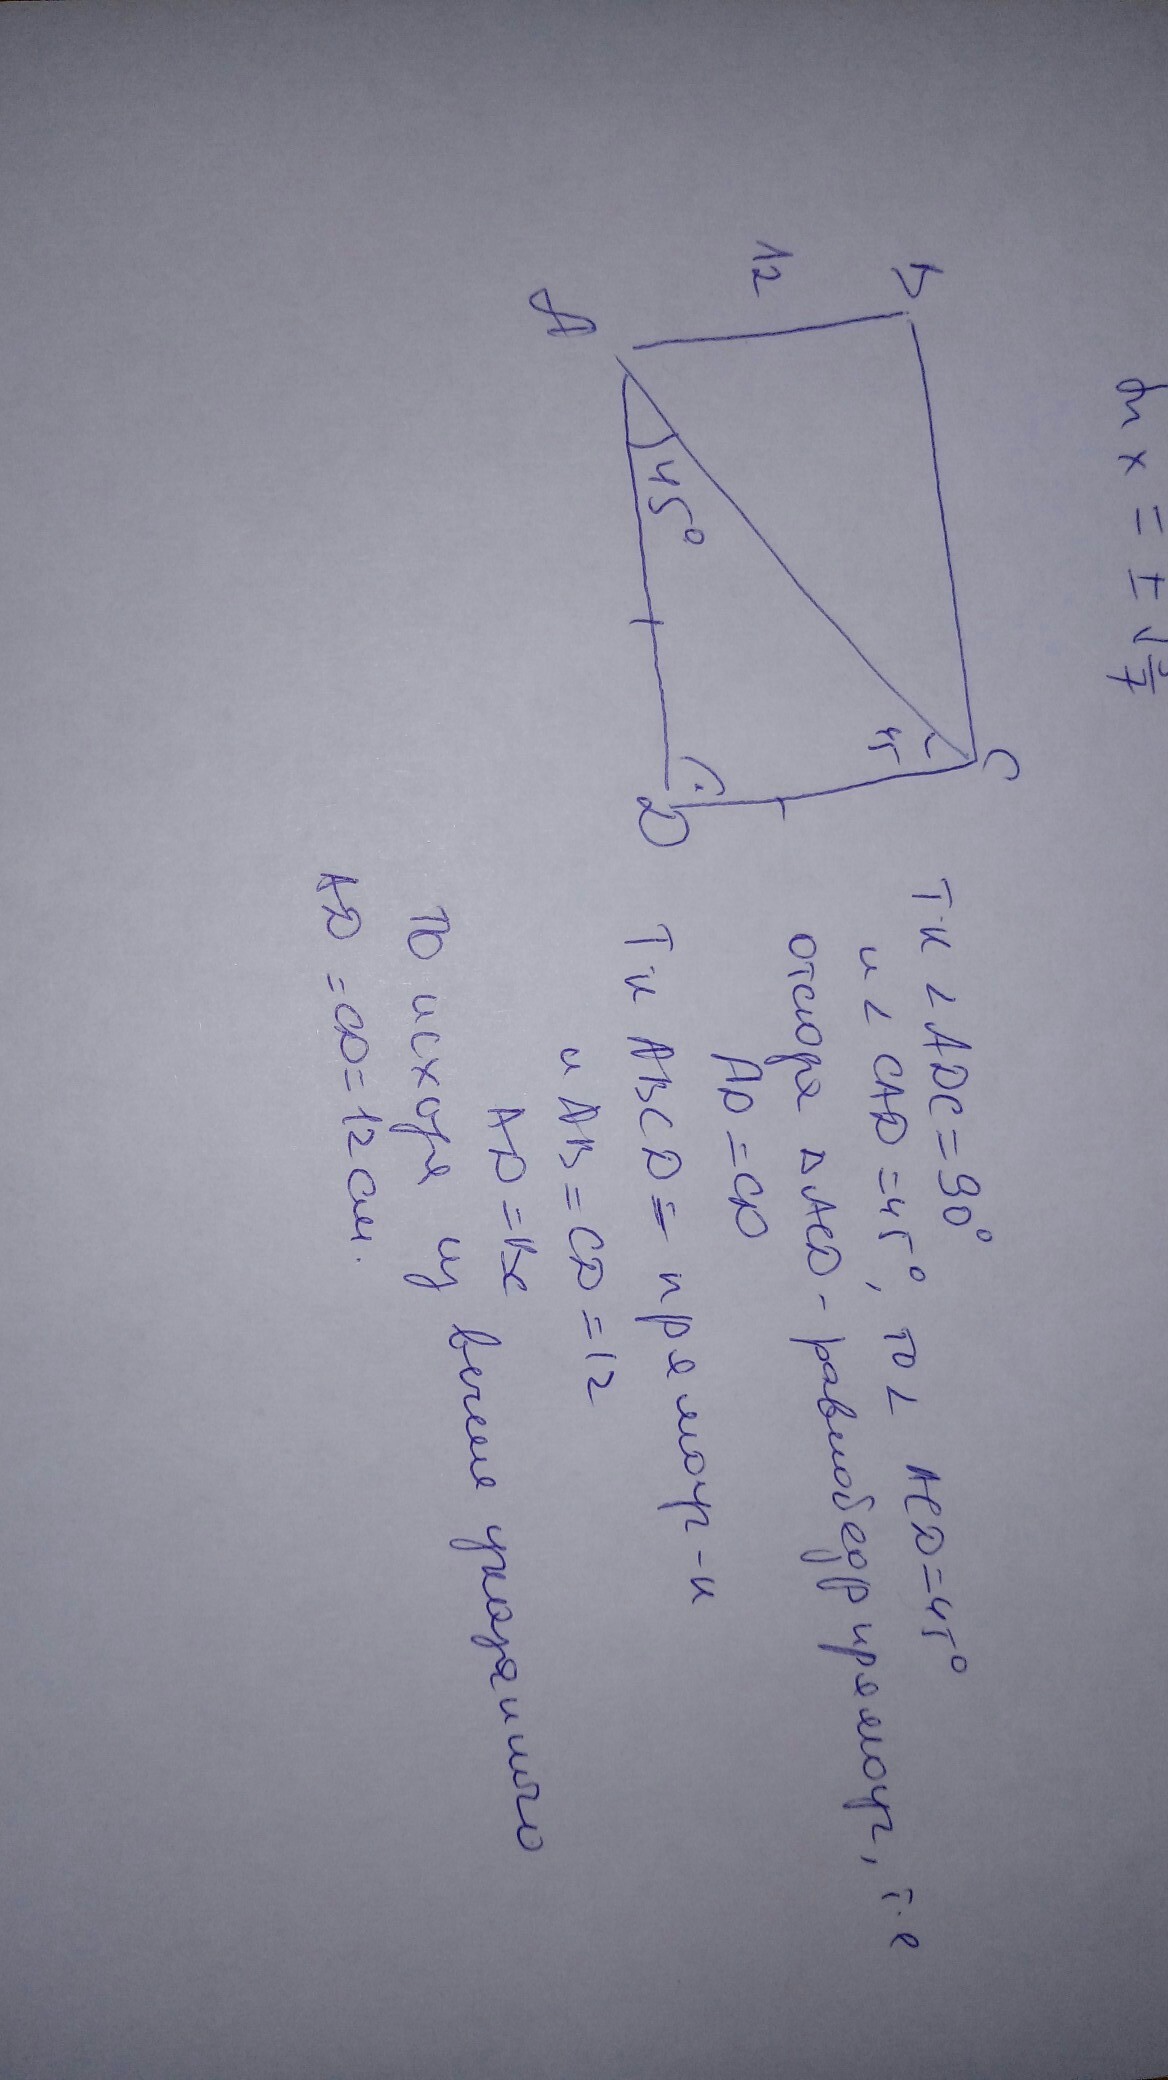 x = ±√
B
C
12
45
45°
A
D
Т.к ∠ADC = 90°
и ∠ CAD = 45°, то ∠ ACD = 45°
отсюда ΔACD - равнобедр прямоуг, т.е
AD = CD
Т.к ABCD = прямоуг-к
и AB = CD = 12
AD = BC
то исходя из всего указанного
AD = CD = 12 см.